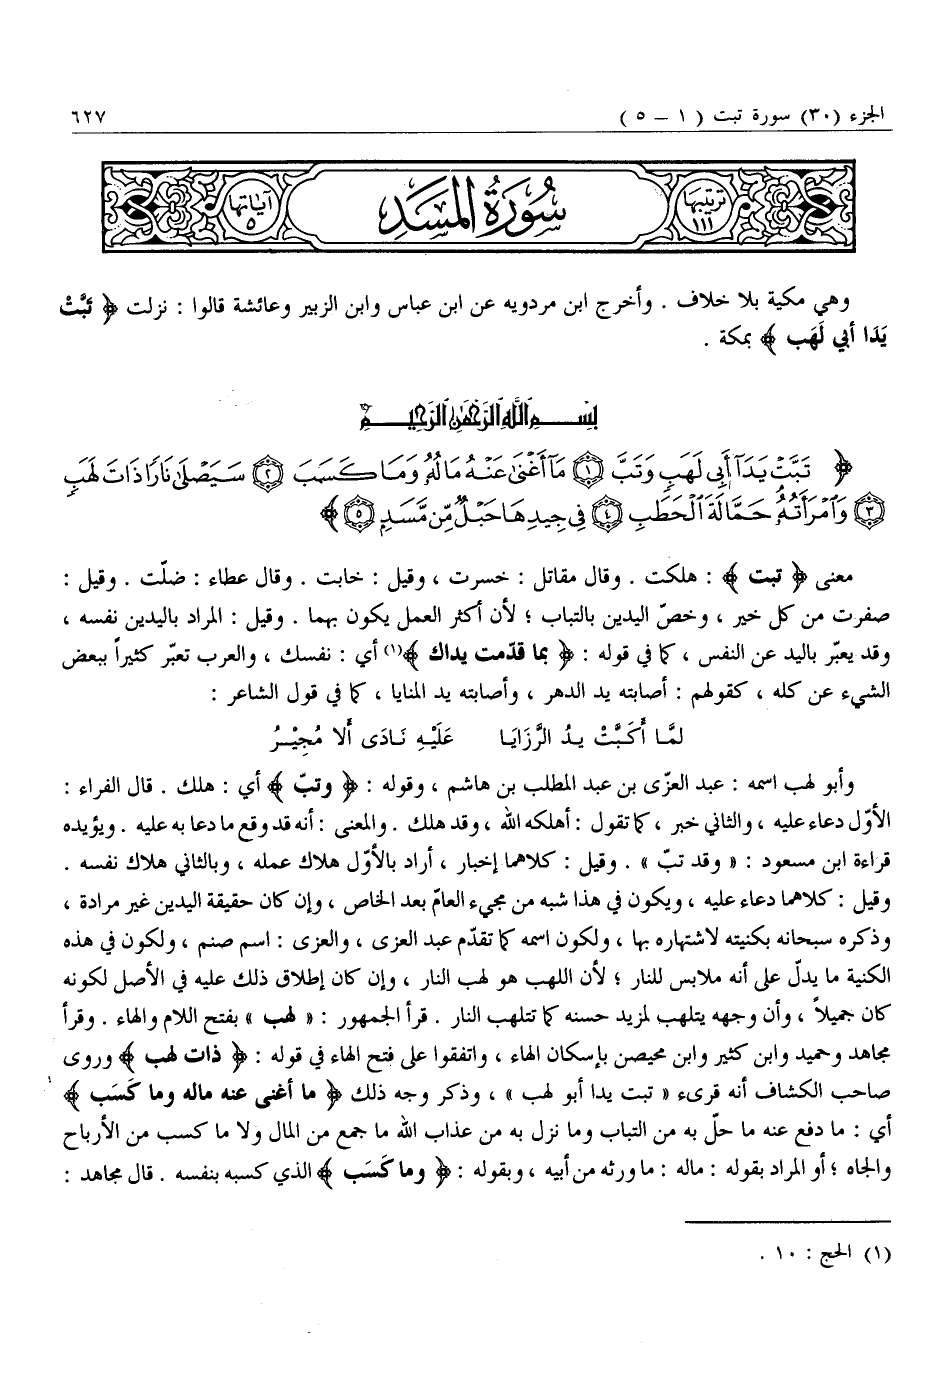 الجزء (٣٠) سورة تبت ( ١ – ٥ ) ٦٢٧
ترتيبها ١١١ سُورَةُ المَسَدِ آياتها ٥
وهي مكية بلا خلاف . وأخرج ابن مردويه عن ابن عباس وابن الزبير وعائشة قالوا : نزلت ﴿ تَبَّتْ
يَدَا أبي لَهَب ﴾ بمكة .
بِسْمِ اللَّهِ الرَّحْمَٰنِ الرَّحِيمِ
﴿ تَبَّتْ يَدَآ أَبِى لَهَبٍ وَتَبَّ ١ مَآ أَغْنَىٰ عَنْهُ مَالُهُۥ وَمَا كَسَبَ ٢ سَيَصْلَىٰ نَارًا ذَاتَ لَهَبٍ
٣ وَٱمْرَأَتُهُۥ حَمَّالَةَ ٱلْحَطَبِ ٤ فِى جِيدِهَا حَبْلٌ مِّن مَّسَدٍ ٥ ﴾
معنى ﴿ تبت ﴾ : هلكت . وقال مقاتل : خسرت ، وقيل : خابت . وقال عطاء : ضلّت . وقيل :
صفرت من كل خير ، وخصّ اليدين بالتباب ؛ لأن أكثر العمل يكون بهما . وقيل : المراد باليدين نفسه ،
وقد يعبّر باليد عن النفس ، كما في قوله : ﴿ بما قدّمت يداك ﴾(١) أي : نفسك ، والعرب تعبّر كثيراً ببعض
الشيء عن كله ، كقولهم : أصابته يد الدهر ، وأصابته يد المنايا ، كما في قول الشاعر :
لمَّا أَكَبَّتْ يدُ الرَّزَايَا عَلَيْهِ نَادَى أَلا مُجِيْرُ
وأبو لهب اسمه : عبد العزّى بن عبد المطلب بن هاشم ، وقوله : ﴿ وتبّ ﴾ أي : هلك . قال الفراء :
الأوّل دعاء عليه ، والثاني خبر ، كما تقول : أهلكه الله ، وقد هلك . والمعنى : أنه قد وقع ما دعا به عليه . ويؤيده
قراءة ابن مسعود : « وقد تبّ » . وقيل : كلاهما إخبار ، أراد بالأوّل هلاك عمله ، وبالثاني هلاك نفسه .
وقيل : كلاهما دعاء عليه ، ويكون في هذا شبه من مجيء العامّ بعد الخاص ، وإن كان حقيقة اليدين غير مرادة ،
وذكره سبحانه بكنيته لاشتهاره بها ، ولكون اسمه كما تقدّم عبد العزى ، والعزى : اسم صنم ، ولكون في هذه
الكنية ما يدلّ على أنه ملابس للنار ؛ لأن اللهب هو لهب النار ، وإن كان إطلاق ذلك عليه في الأصل لكونه
كان جميلاً ، وأن وجهه يتلهب لمزيد حسنه كما تتلهب النار . قرأ الجمهور : « لهب » بفتح اللام والهاء . وقرأ
مجاهد وحميد وابن كثير وابن محيصن بإسكان الهاء ، واتفقوا على فتح الهاء في قوله : ﴿ ذات لهب ﴾ وروى
صاحب الكشاف أنه قرىء « تبت يدا أبو لهب » ، وذكر وجه ذلك ﴿ ما أغنى عنه ماله وما كَسَب ﴾
أي : ما دفع عنه ما حلّ به من التباب وما نزل به من عذاب الله ما جمع من المال ولا ما كسب من الأرباح
والجاه ؛ أو المراد بقوله : ماله : ما ورثه من أبيه ، وبقوله : ﴿ وما كَسَب ﴾ الذي كسبه بنفسه . قال مجاهد :
(١) الحج : ١٠ .